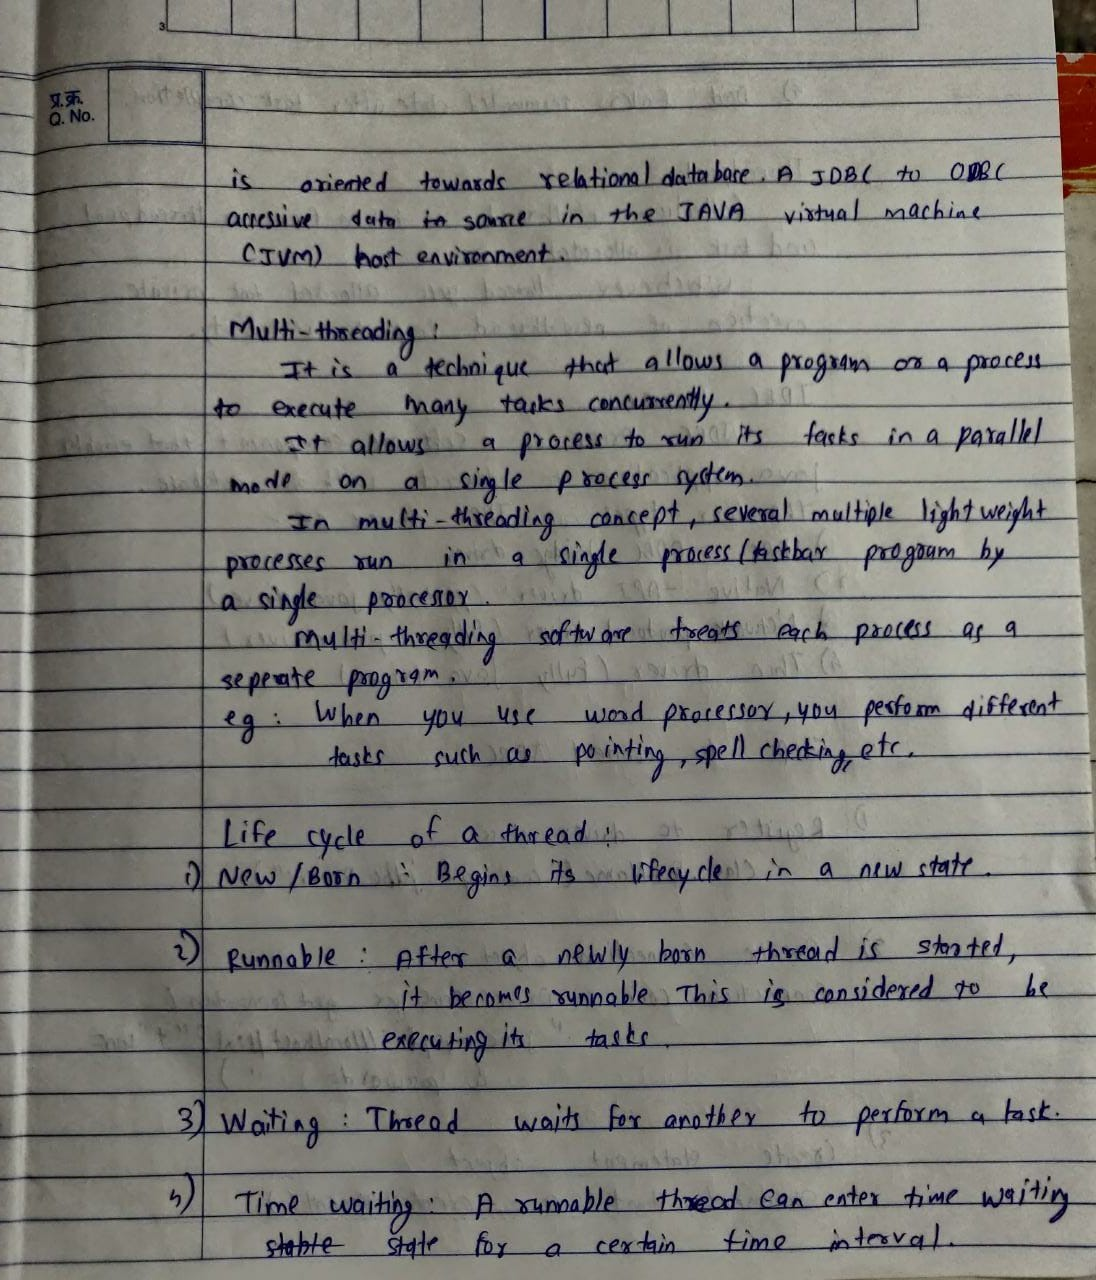 3
प्र.क्र.
Q. No.
is oriented towards relational database. A JDBC to ODBC
accessive data in source in the JAVA virtual machine
(JVM) host environment.
Multi-threading :
It is a technique that allows a program or a process
to execute many tasks concurrently.
It allows a process to run its tasks in a parallel
mode on a single process system.
In multi-threading concept, several multiple lightweight
processes run in a single process/taskbar program by
a single processor.
Multi-threading software treats each process as a
seperate program.
eg : When you use word processor, you perform different
tasks such as pointing, spell checking, etc.
Life cycle of a thread :
1) New /Born : Begins its lifecycle in a new state.
2) Runnable : After a newly born thread is started,
it becomes runnable This is considered to be
executing its tasks
3) Waiting : Thread waits for another to perform a task.
4) Time waiting : A runnable thread can enter time waiting
stable state for a certain time interval.